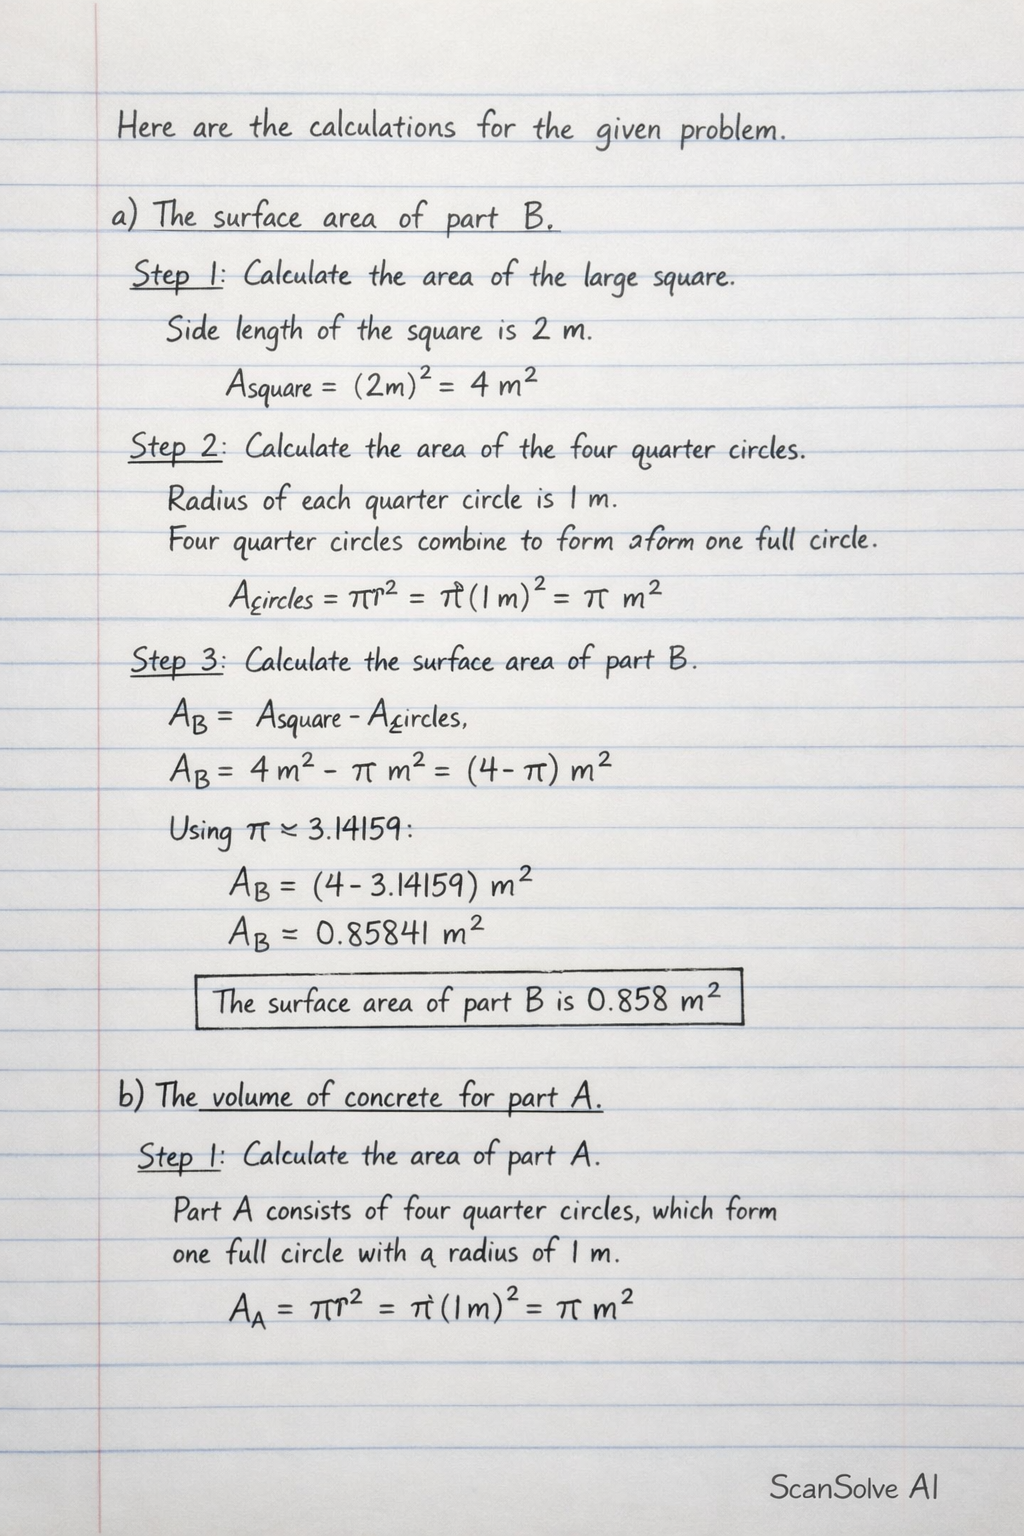 Here are the calculations for the given problem.
a) The surface area of part B.
Step 1: Calculate the area of the large square.
Side length of the square is 2 m.
Asquare = (2m)² = 4 m²
Step 2: Calculate the area of the four quarter circles.
Radius of each quarter circle is 1 m.
Four quarter circles combine to form aform one full circle.
Acircles = πr² = π(1 m)² = π m²
Step 3: Calculate the surface area of part B.
A_B = Asquare - Acircles,
A_B = 4 m² - π m² = (4 - π) m²
Using π ≈ 3.14159:
A_B = (4 - 3.14159) m²
A_B = 0.85841 m²
The surface area of part B is 0.858 m²
b) The volume of concrete for part A.
Step 1: Calculate the area of part A.
Part A consists of four quarter circles, which form
one full circle with a radius of 1 m.
A_A = πr² = π(1m)² = π m²
ScanSolve AI